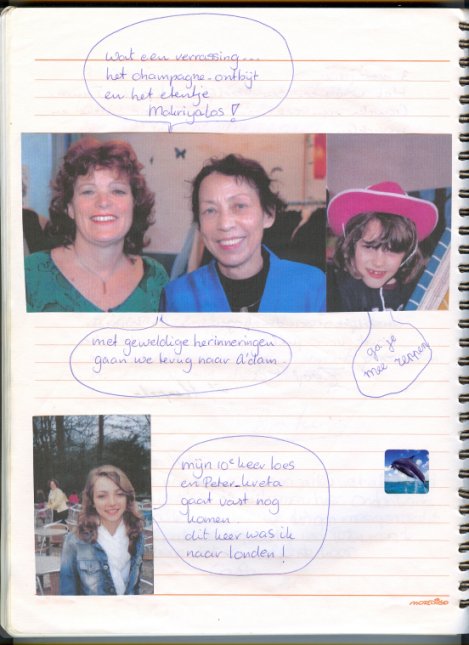 wat een verrassing...
het champagne-ontbijt
en het etentje
Makriyalos!
met geweldige herinneringen
gaan we terug naar A'dam
ga je
mee
mijn 10e keer loes
en Peter-kreta
gaat vast nog
komen
dit keer was ik
naar londen!